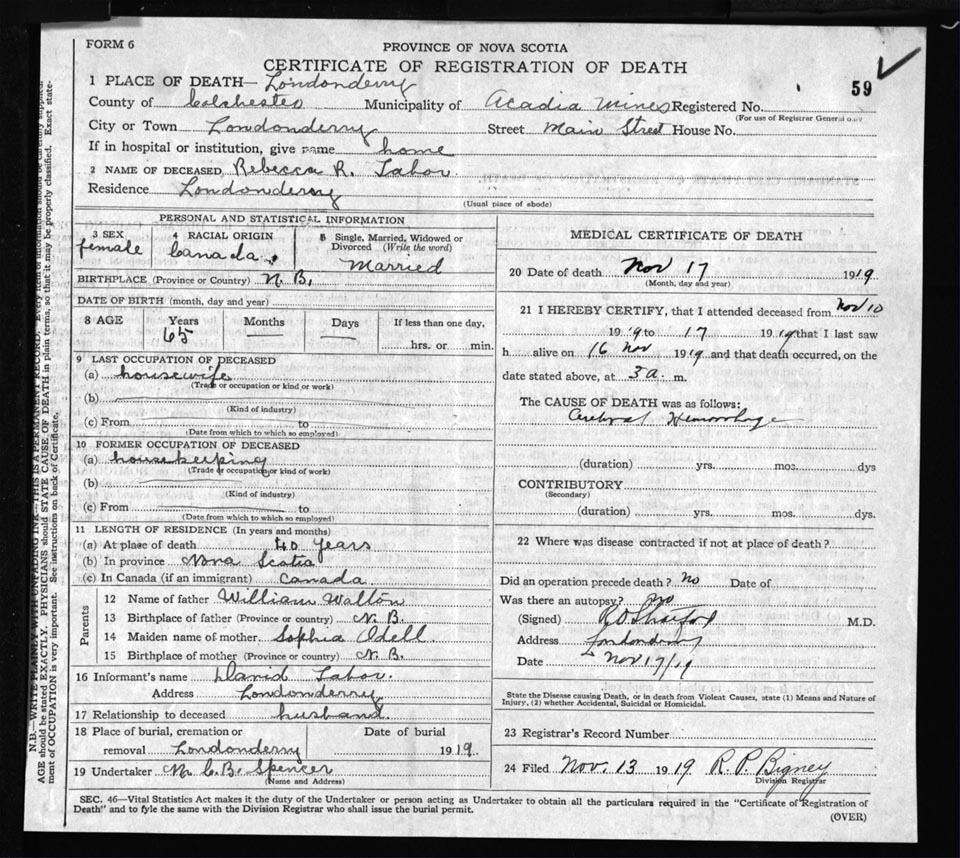 FORM 6
PROVINCE OF NOVA SCOTIA
CERTIFICATE OF REGISTRATION OF DEATH
59
1 PLACE OF DEATH— Londonderry
County of Colchester Municipality of Acadia Mines Registered No.
(For use of Registrar General only
City or Town Londonderry Street Main Street House No.
If in hospital or institution, give name home
2 NAME OF DECEASED Rebecca R. Tabor.
Residence Londonderry
(Usual place of abode)
PERSONAL AND STATISTICAL INFORMATION
3 SEX 4 RACIAL ORIGIN 5 Single, Married, Widowed or
Divorced (Write the word)
female Canada Married
BIRTHPLACE (Province or Country) N.B.
DATE OF BIRTH (month, day and year)
8 AGE Years Months Days If less than one day,
65 hrs. or min.
9 LAST OCCUPATION OF DECEASED
(a) housewife
(Trade or occupation or kind or work)
(b)
(Kind of industry)
(c) From to
(Date from which to which so employed)
10 FORMER OCCUPATION OF DECEASED
(a) housekeeping
(Trade or occupation or kind of work)
(b)
(Kind of industry)
(c) From to
(Date from which to which so employed)
11 LENGTH OF RESIDENCE (In years and months)
(a) At place of death 40 years
(b) In province Nova Scotia
(c) In Canada (if an immigrant) Canada
Parents
12 Name of father William Walton
13 Birthplace of father (Province or country) N.B.
14 Maiden name of mother Sophia Odell
15 Birthplace of mother (Province or country) N.B.
16 Informant's name David Tabor.
Address Londonderry
17 Relationship to deceased husband.
18 Place of burial, cremation or Date of burial
removal Londonderry 1919.
19 Undertaker C.B. Spencer
(Name and Address)
MEDICAL CERTIFICATE OF DEATH
20 Date of death Nov 17 1919
(Month, day and year)
21 I HEREBY CERTIFY, that I attended deceased from Nov 10
1919 to 17 1919 that I last saw
h alive on 16 Nov 1919 and that death occurred, on the
date stated above, at 3 a. m.
The CAUSE OF DEATH was as follows:
Cerebral Hemorrhage
(duration) yrs. mos. dys
CONTRIBUTORY
(Secondary)
(duration) yrs. mos. dys.
22 Where was disease contracted if not at place of death?
Did an operation precede death? No Date of
Was there an autopsy? no
(Signed) M.D.
Address Londonderry
Date Nov 17/19
State the Disease causing Death, or in death from Violent Causes, state (1) Means and Nature of
Injury, (2) whether Accidental, Suicidal or Homicidal.
23 Registrar's Record Number
24 Filed Nov. 13 1919 R. P. Bigney
Division Registrar
SEC. 46—Vital Statistics Act makes it the duty of the Undertaker or person acting as Undertaker to obtain all the particulars required in the "Certificate of Registration of
Death" and to fyle the same with the Division Registrar who shall issue the burial permit.
(OVER)
N.B.—WRITE PLAINLY, WITH UNFADING INK—THIS IS A PERMANENT RECORD. Every item of information should be carefully supplied.
AGE should be stated EXACTLY. PHYSICIANS should STATE CAUSE OF DEATH in plain terms, so that it may be properly classified. Exact state-
ment of OCCUPATION is very important. See instructions on back of Certificate.